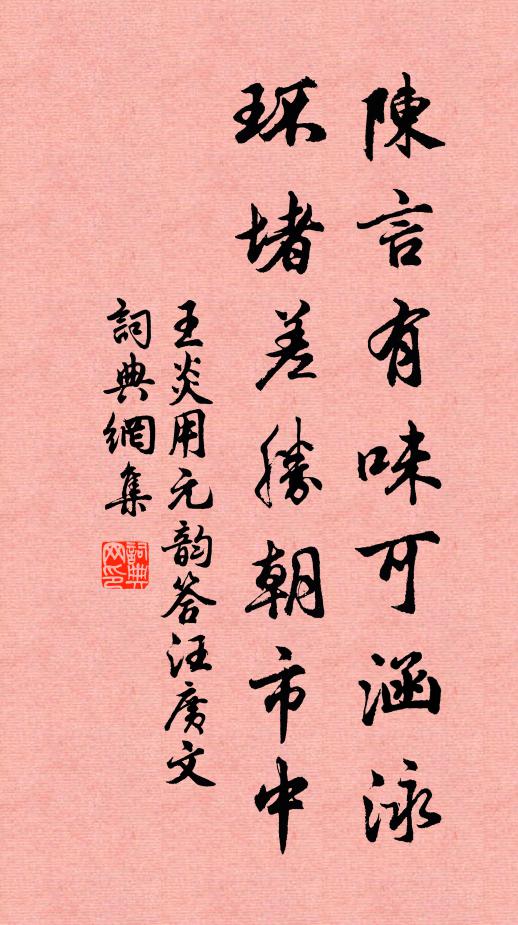 陳言有味可涵泳
环堵差勝朝市中
王炎用元韵答汪廣文
詞典網集
詞典網印